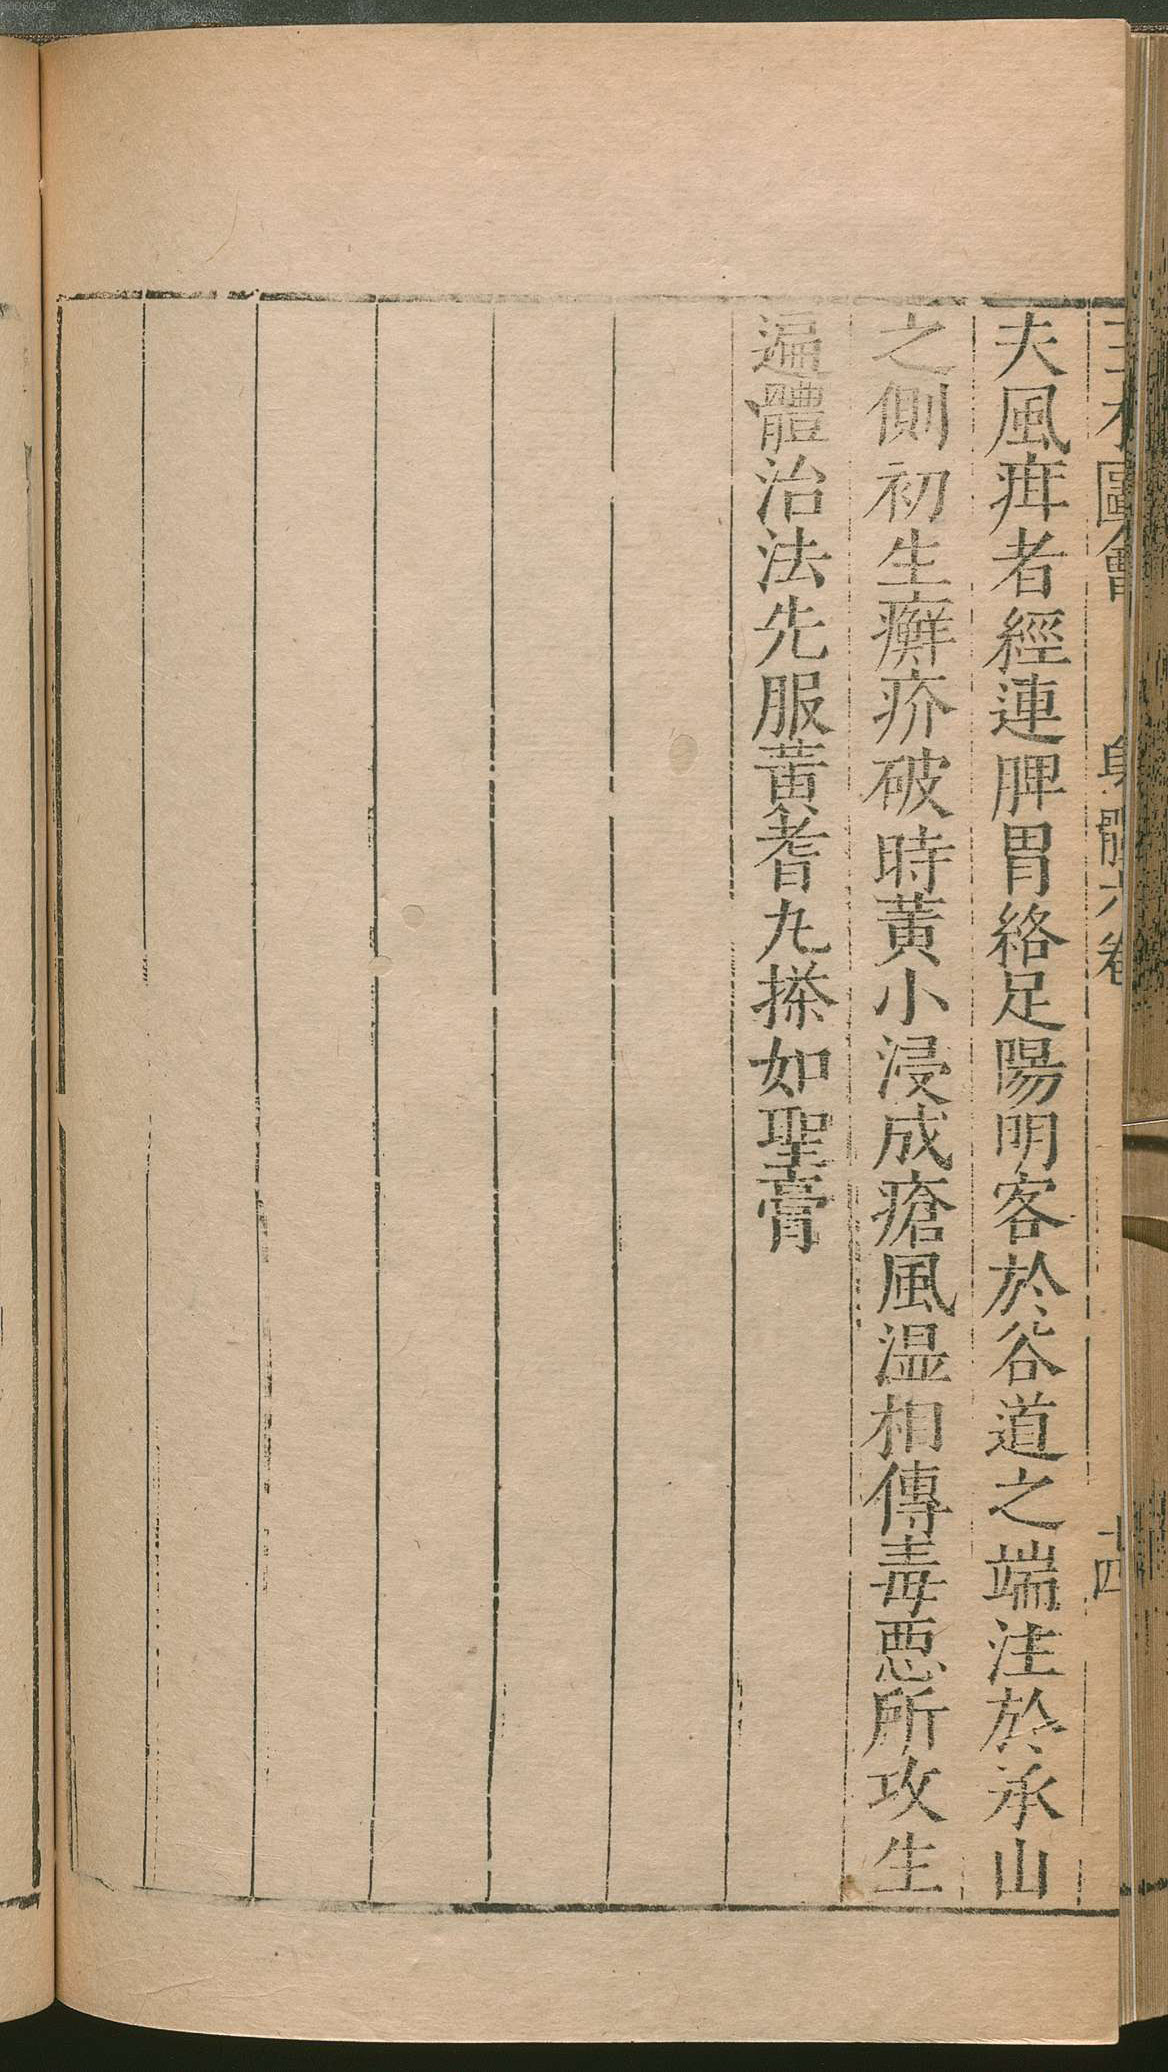 三才圖會 身體六卷 十四
夫風疰者經連脾胃絡足陽明客於谷道之端注於承山
之側初生癬疥破時黃小浸成瘡風温相傳毒惡所攻生
遍體治法先服黃耆九搽如聖膏